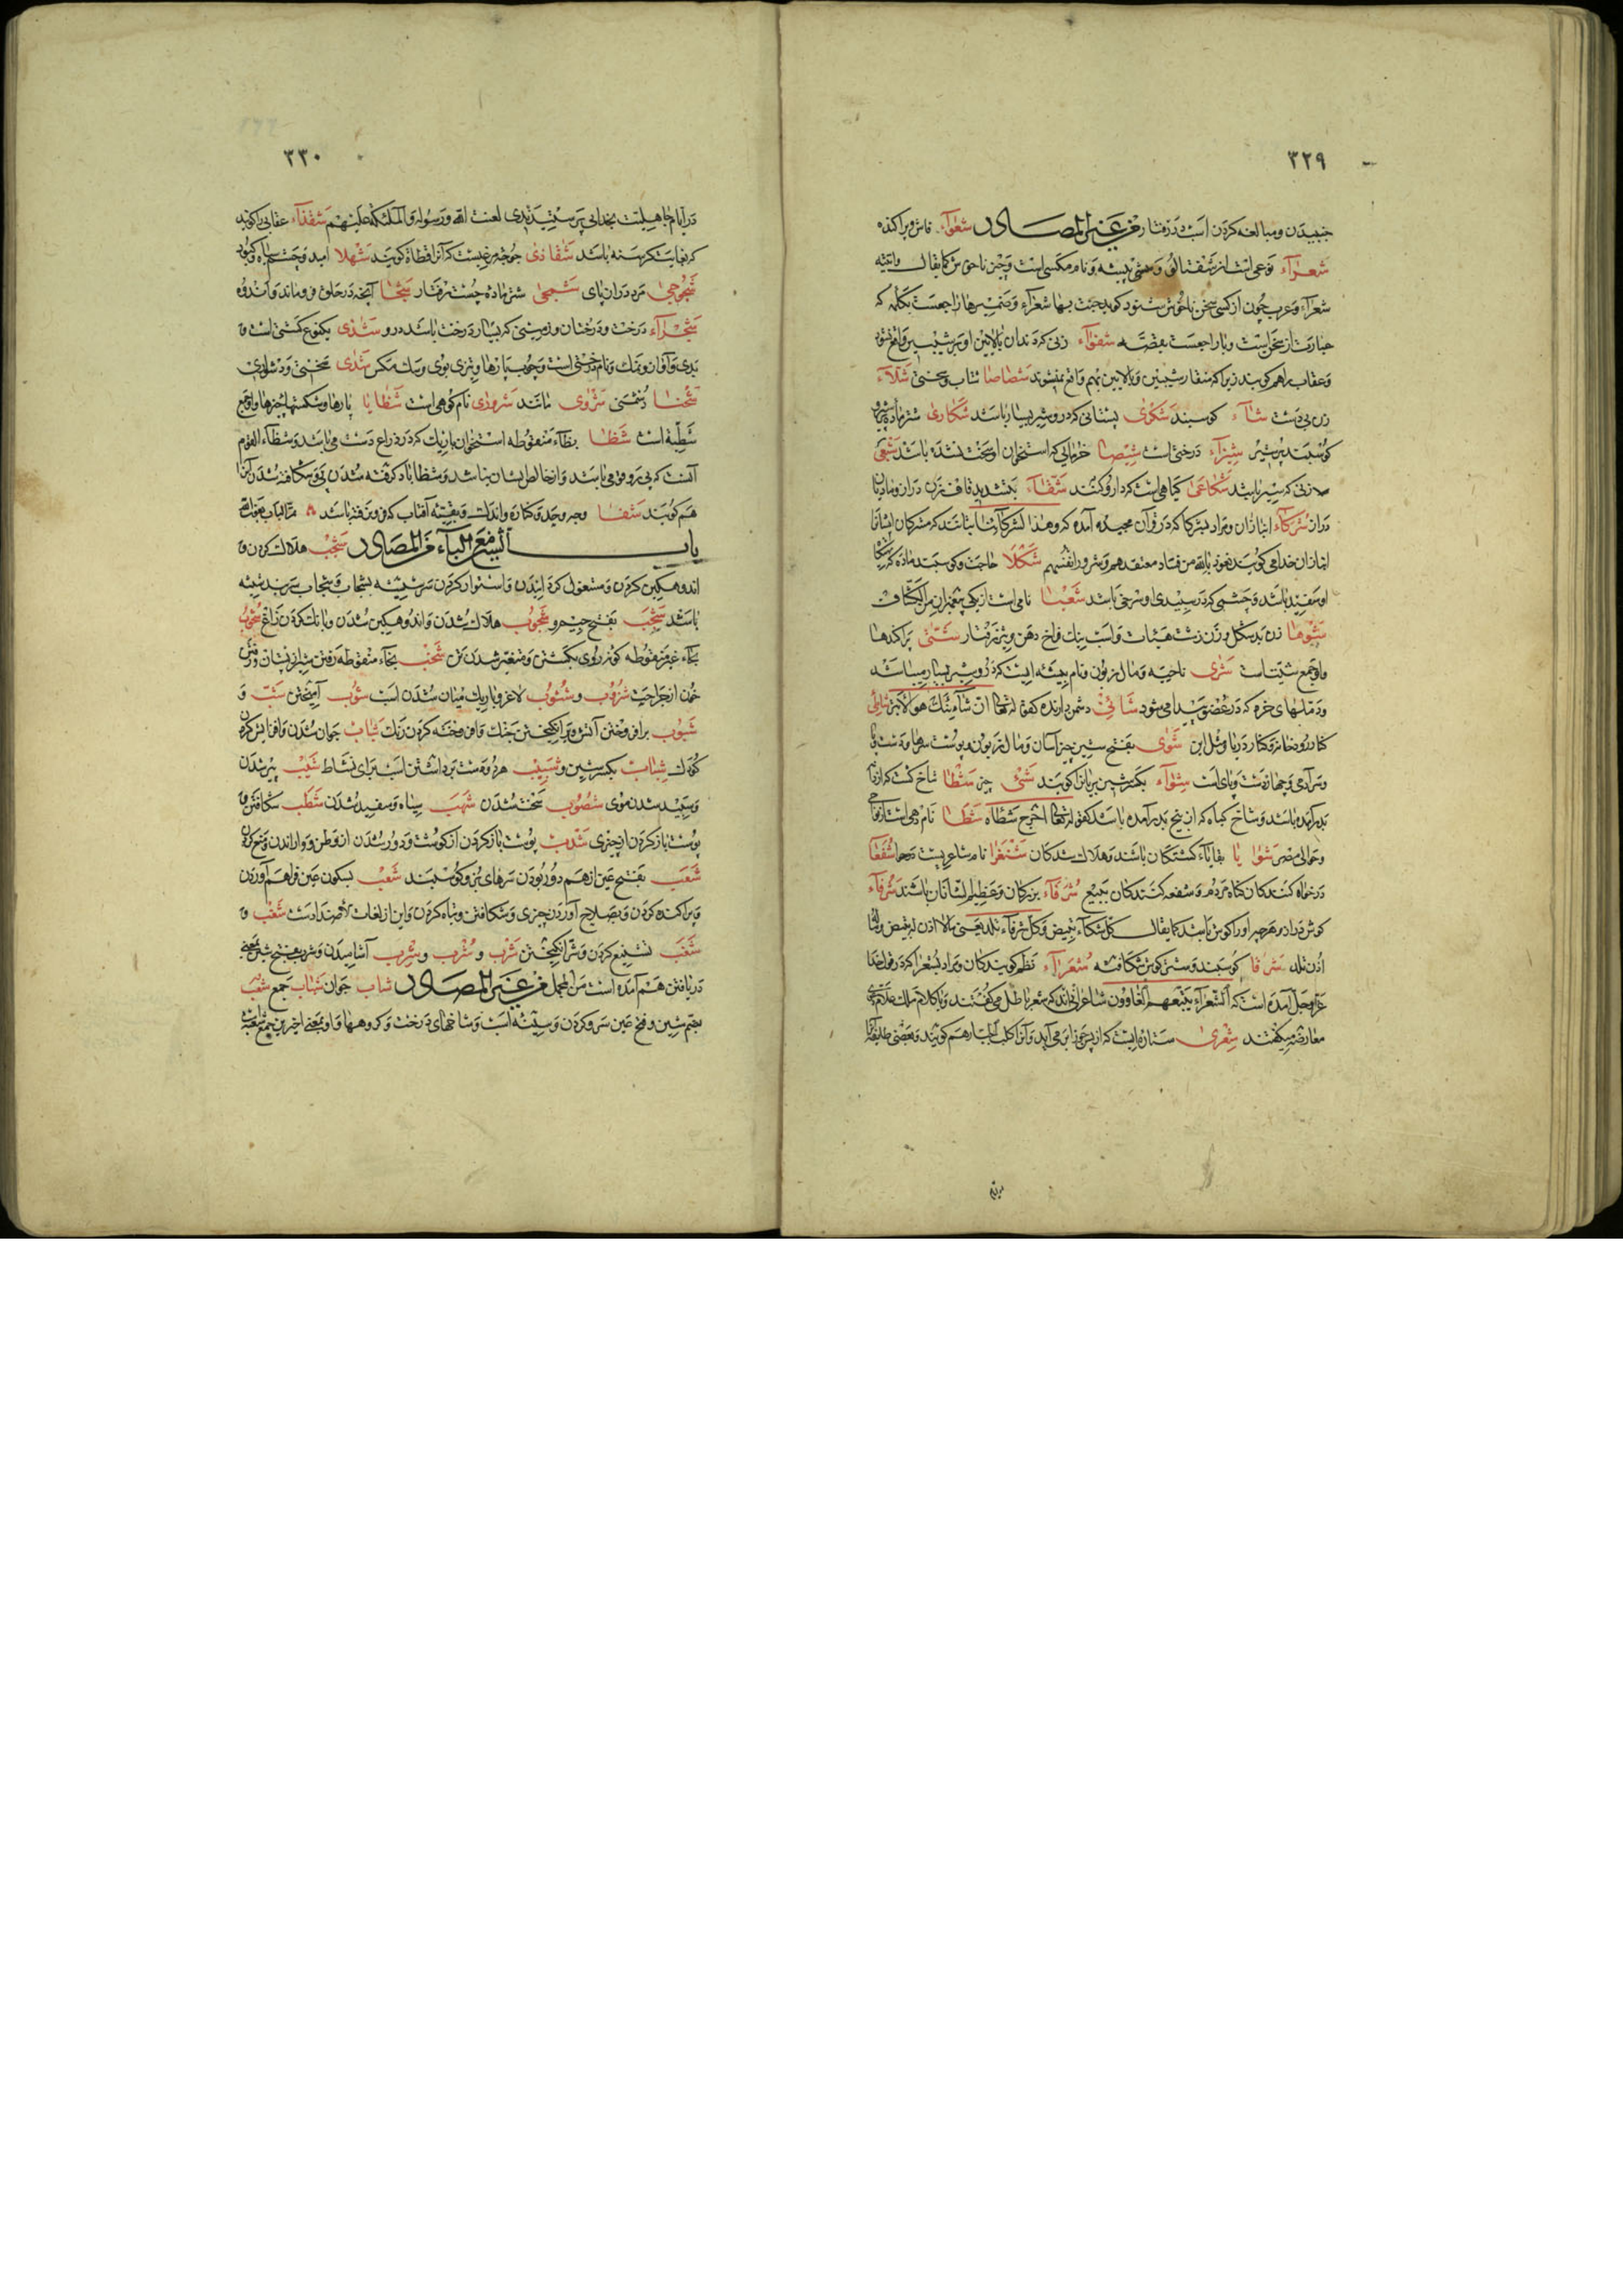 ٣٢٩
جنبیدن و مبالغه کردن اسب در رفتار من غیر المصادر شعوآء فاش و پراکنده
شعرآء نوعی است از شفتالو و مکس و نام مکسی است و چیز ناخوش کما یقال
شعرآء و عرب چون از کسی سخن ناخوش شنود کوید جئت بها شعرآء و ضمیر ها راجعست بکلمه که
عبارت از سخن است و با راجعست بقصه شغوآء زنی که دندان بالایین او بر شیبین واقع نشود
و عقاب را هم کویند زیرا که منقار شیبین و بالایین بهم واقع نمیشوند شصاصا شتاب و سختی شلآء
زن بی دست شآء کوسبند شکوی بستانی که درو شیر بسیار باشد شکاری
کوسبند شیزآء درختی است شیصا خرمایی که استخوان او سخت نشده باشد
شکاعی کیاهی است که دارو کنند شقآء بتشدید قاف زن دراز و مادیان
دراز شرکآء انبازان و مراد بشرکا که در قرآن مجید آمده که هذا لشرکآئنا بتانند که مشرکان ایشانرا
انبازان خدا می کویند نعوذ بالله من فساد معتقدهم و شرور انفسهم شکلا حاجت و کوسبند ماده که
او سفید باشد و چشمی که در سپیدی او سرخی باشد شعیا نامی است از یکی پیغمبران من الکشاف
شوها زن بد شکل و زن زشت هیئات و اسب نیک فراخ دهن و تیز رفتار شتی پراکندها
و او جمع شتیت است شری ناحیه و مال زبون و نام بیشه ایست که درو شیر بسیار میباشد
و دملهای خرد که در عضو پیدا می شود شانئ دشمن دارنده کقوله تعالی ان شانئک هو الابتر
کنار رودخانه و کنار دریا شوی بفتح شین چیز آسان و مال زبون و پوست سرها و دست و پا
و سر آدمی و چهار دست و پای اسب شوآء بکسر شین بریانرا کویند شئ چیز شطا شاخ کشت که از
بدر آمده باشد و شاخ کیاه که از بیخ بدر آمده باشد کقوله تعالی اخرج شطأه شطا نام دهی است
و حوالی مصر شوا یا بقایآء کشتکان باشند و هلاک شدکان شنفرا نام شاعریست شفعا
درخواه کنندکان کناه مردم و شفعه کنندکان ببیع شرفآء بزرکان و عظیم الشانان باشند شرفآء
کوش دراز و هر چه او را کوش باشد کما یقال کل سکآء تبیض و کل شرفآء تلد یعنی مالا اذن له تبیض و ما له
اذن تلد شرقا کوسبند و شتر کوش شکافته شعرآء نظم کویندکان و مراد بشعرا که در قول خدا
عز و جل آمده است که الشعرآء یتبعهم الغاوون شاعرانی اند که شعر باطل می کفتند و با کلام ملک علام
معارضه میکفتند شعری ستاره ایست که از پس جوزا بر می آید و آنرا کلب الجبار هم کویند و بعضی طایفه
٣٣٠
در ایام جاهلیت بخدایی پرستیدندی لعنت الله و رسوله و الملئکة علیهم شقذآء عقابی را کویند
که بغایت کرسنه باشد شقاذی جوجه مرغیست که آنرا قطاة کویند شهلا امید و چشم سیاه
شجوجی مرد دراز پای شمجی شتر ماده چست رفتار شجا آنچه در حلق فرو ماند و اندوه
شجرآء درخت و درختان و زمینی که بسیار درخت باشد درو شذی یکنوع کشتی است و
بدی و آواز و نمک و نام درختی است و چوب پارها و تیزی بوی و یک مکس شدی سختی و دشواری
شحنا دشمنی شروی مانند شروری نام کوهی است شظایا پارها و شکستها چیزها و او جمع
شظیة است شظا بظآء منقوطه استخوان باریک که در ذراع دست می باشد و شظآء القوم
آنست که پی رو قوم می باشد و از خالص ایشان نباشد و شظا باد کرفته شدن پی و شکافته شدن آنرا
هم کویند شفا وجه و حد و کناره و اندک و بقیه آفتاب که فرو نرفته باشد
باب الشین مع البآء من المصادر شجب هلاک کردن و
اندوهکین کردن و مشغول کردانیدن و استوار کردن سر شیشه بشجاب و شجاب سر بند شیشه
باشد شجب بفتح جیم و شجوب هلاک شدن و اندوهکین شدن و بانک کردن زاغ شحوب
بحآء غیر منقوطه کونه روی بکشتن و متغیر شدن تن شخب بخآء منقوطه رفتن شیر از پستان و رفتن
خون از جراحت شزوب و شسوب لاغر و باریک میان شدن اسب شوب آمیختن شب و
شبوب بر افروختن آتش و بر انکیختن جنک و افروخته کردن رنک شباب جوان شدن و افزایش کردن
کودک شباب بکسر شین و شبیب هر دو دست برداشتن اسب برای نشاط شیب پیر شدن
و سپید شدن موی شصوب سخت شدن شهب سیاه و سفید شدن شطب شکافتن و
پوست باز کردن از چیزی شذب پوست باز کردن از کوشت و دور شدن از وطن و وا راندن
شعب بفتح عین از هم دور بودن سرهای بز و کوسبند شعب بسکون عین فراهم آوردن
و پراکنده کردن و بصلاح آوردن چیزی و شکافتن و تباه کردن و این از لغات الاضدادست شغب و
شغب تشنیع کردن و شر انکیختن شرب و شرب و شرب آشامیدن و شرب بفتح شین بمعنی
دریافتن هم آمده است من المجمل من غیر المصادر شاب جوان شباب جمع شعب
بضم شین و فتح عین سر و کردن و سینه اسب و شاخهای درخت و کروهها و او بمعنی اخیرین جمع شعبة